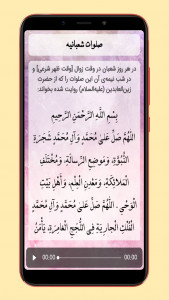 صلوات شعبانیه
در هر روز شعبان در وقت زوال [وقت ظهر شرعی] و
در شب نیمه‌ی آن این صلوات را که از حضرت
زین‌العابدین (علیه‌السلام) روایت شده بخواند:
بِسْمِ اللَّهِ الرَّحْمَنِ الرَّحِيمِ
اللَّهُمَّ صَلِّ عَلَى مُحَمَّدٍ وَآلِ مُحَمَّدٍ شَجَرَةِ
النُّبُوَّةِ، وَمَوْضِعِ الرِّسَالَةِ، وَمُخْتَلَفِ
الْمَلائِكَةِ، وَمَعْدِنِ الْعِلْمِ، وَأَهْلِ بَيْتِ
الْوَحْيِ. اللَّهُمَّ صَلِّ عَلَى مُحَمَّدٍ وَآلِ مُحَمَّدٍ،
الْفُلْكِ الْجَارِيَةِ فِي اللُّجَجِ الْغَامِرَةِ، يَأْمَنُ
00:00 00:00